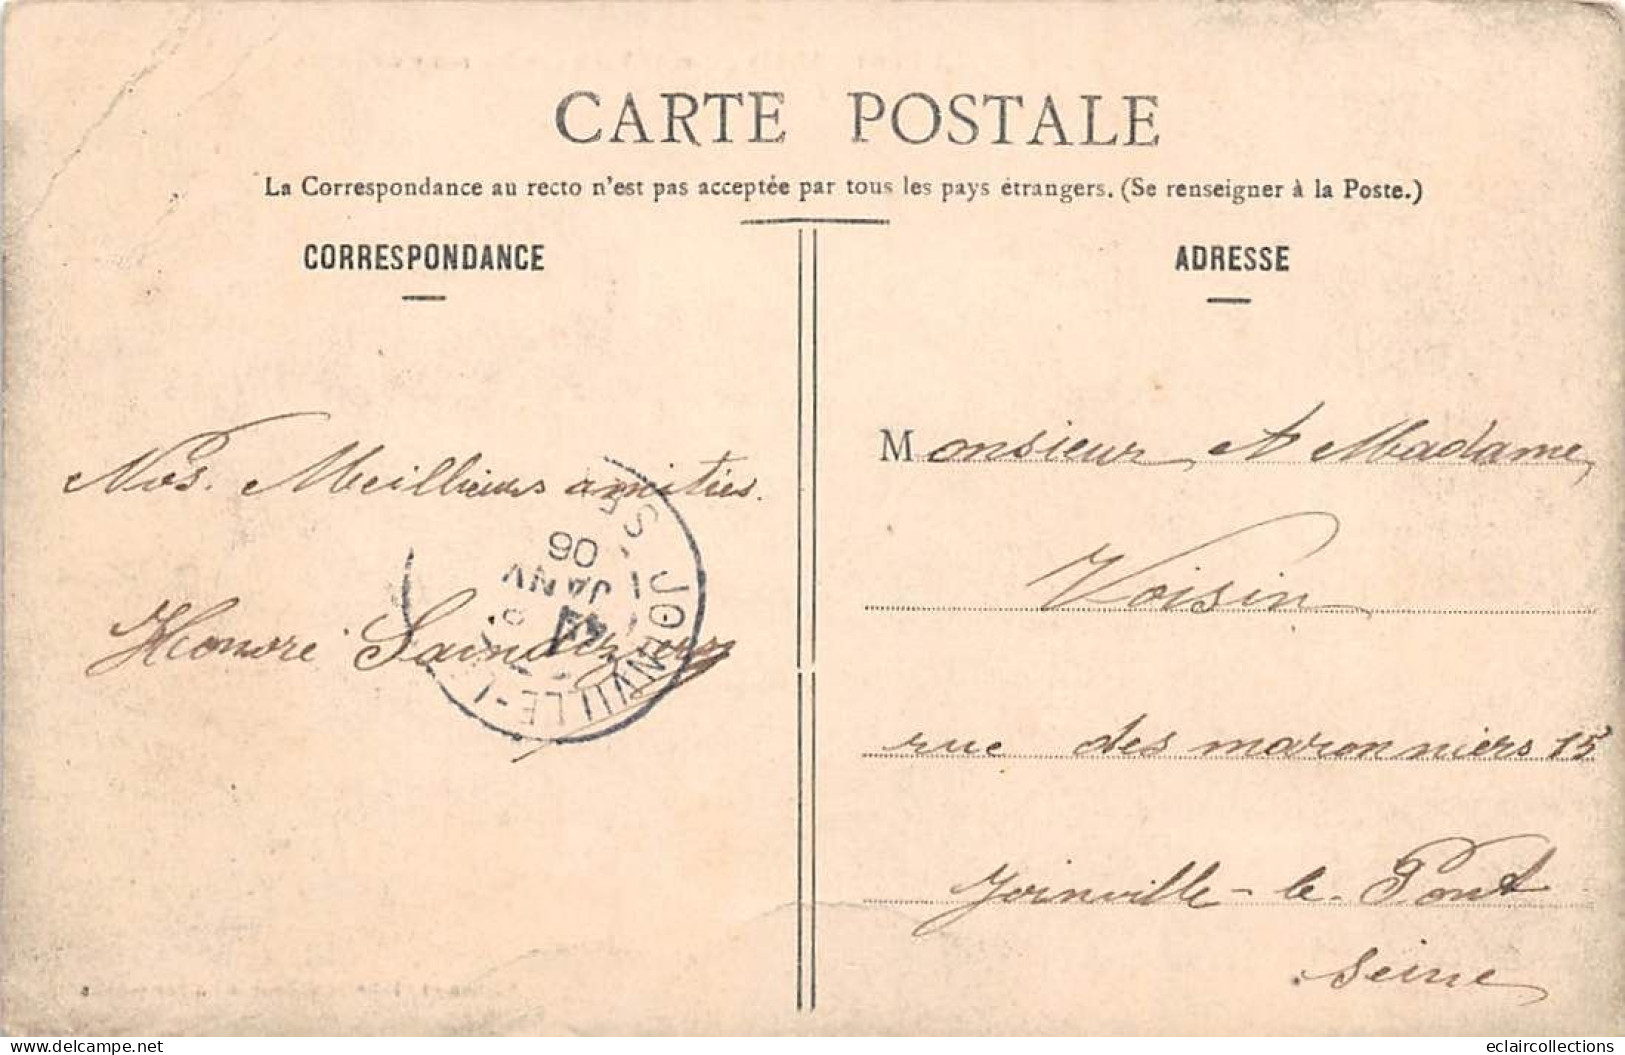 CARTE POSTALE
La Correspondance au recto n'est pas acceptée par tous les pays étrangers. (Se renseigner à la Poste.)
CORRESPONDANCE
Nos. Meillieurs amitiés.
Honoré
JOINVILLE-LE
SEI
1
JANV
06
ADRESSE
Monsieur et Madame
Voisin
rue des maronniers 15
Joinville-le-Pont
Seine
delcampe.net
eclaircollections